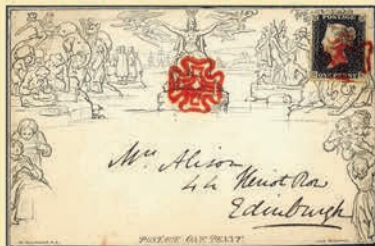 POSTAGE
ONE PENNY
Mrs Alison
44 Heriot Row
Edinburgh
POSTAGE ONE PENNY.